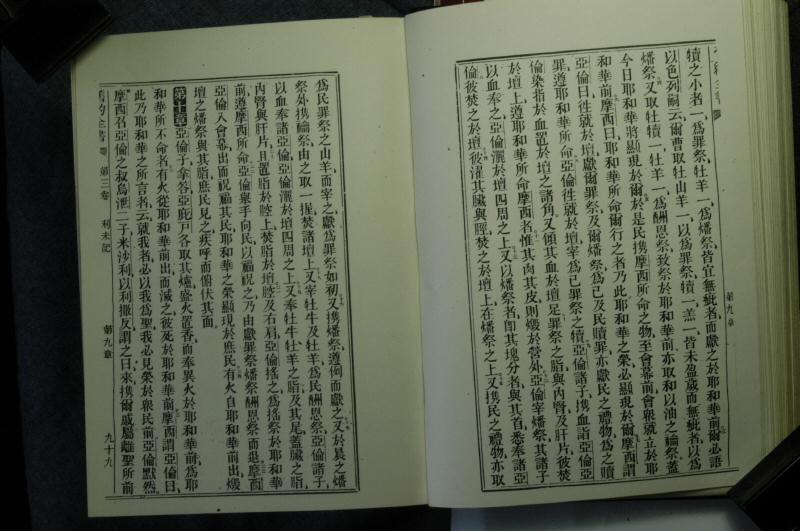 犢之小者一、爲罪祭、牡羊一、爲燔祭、皆宜無疵者、而獻之於耶和華前、爾必語
以色列嗣云、爾曹取牡山羊一、以爲罪祭、犢一、羔一、皆未盈歲而無疵者、以爲
燔祭、又取牡犢一、牡羊一、爲酬恩祭、致祭於耶和華前、亦取和以油之禴祭、蓋
今日耶和華將顯現於爾、於是民攜摩西所命之物、至會幕前、會衆就立於耶
和華前、摩西曰、耶和華所命爾行之者、乃此、耶和華之榮、必顯現於爾、摩西謂
亞倫曰、往就於壇、獻爾罪祭、及爾燔祭、爲己及民贖罪、亦獻民之禮物、爲之贖
罪、遵耶和華所命、亞倫徃就於壇、宰爲己罪祭之犢、亞倫諸子、攜血詣亞倫、亞
倫染指於血、置於壇之諸角、又傾其血於壇足、罪祭之脂、與內腎、及肝片、彼焚
於壇上、遵耶和華所命摩西者、惟其肉其皮、則燬於營外、亞倫宰燔祭、其諸子
以血奉之、亞倫灑於壇四周之上、又以燔祭者、卽其塊分者、與其首、悉奉諸亞
倫、彼焚之於壇、彼濯其臟與脛、焚之於壇上、在燔祭之上、又攜民之禮物、亦取
第九章
爲民罪祭之山羊、而宰之、獻爲罪祭如初、又攜燔祭、遵例而獻之、又於晨之燔
祭外、攜禴祭、由之取一握、焚諸壇上、又宰牡牛及牡羊、爲民酬恩祭、亞倫諸子、
以血奉諸亞倫、亞倫灑於壇四周之上、又奉牡牛牡羊之脂、及其尾、蓋臟之脂、
內腎與肝片、且置脂於膛上、焚脂於壇、膛及右肩、亞倫搖之、爲搖祭、於耶和華
前、遵摩西所命、亞倫舉手向民、以福祝之、乃由獻罪祭燔祭酬恩祭而退、摩西
亞倫入會幕、出而祝福其民、耶和華之榮、顯現於庶民、有火自耶和華前出、燬
壇之燔祭與其脂、庶民見之、疾呼而俯伏其面、
第十章 亞倫子、拿答、亞庇戶、各取其爐、盛火置香、而奉異火於耶和華前、爲耶
和華所不命者、有火從耶和華前出而滅之、彼死於耶和華前、摩西謂亞倫曰、
此乃耶和華之所言者、云、就我者、必以我爲聖、我必見榮於衆民前、亞倫默然、
摩西召亞倫之叔烏泄二子、米沙利、以利撒反、謂之曰、來、攜爾戚屬、離聖所前、
舊約全書 第三卷 利未記 第九章 九十九